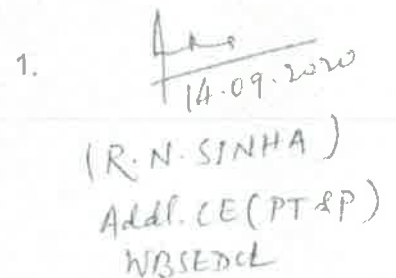 1.
14.09.2020
(R.N. SINHA)
Addl. CE (PT &P)
WBSEDCL